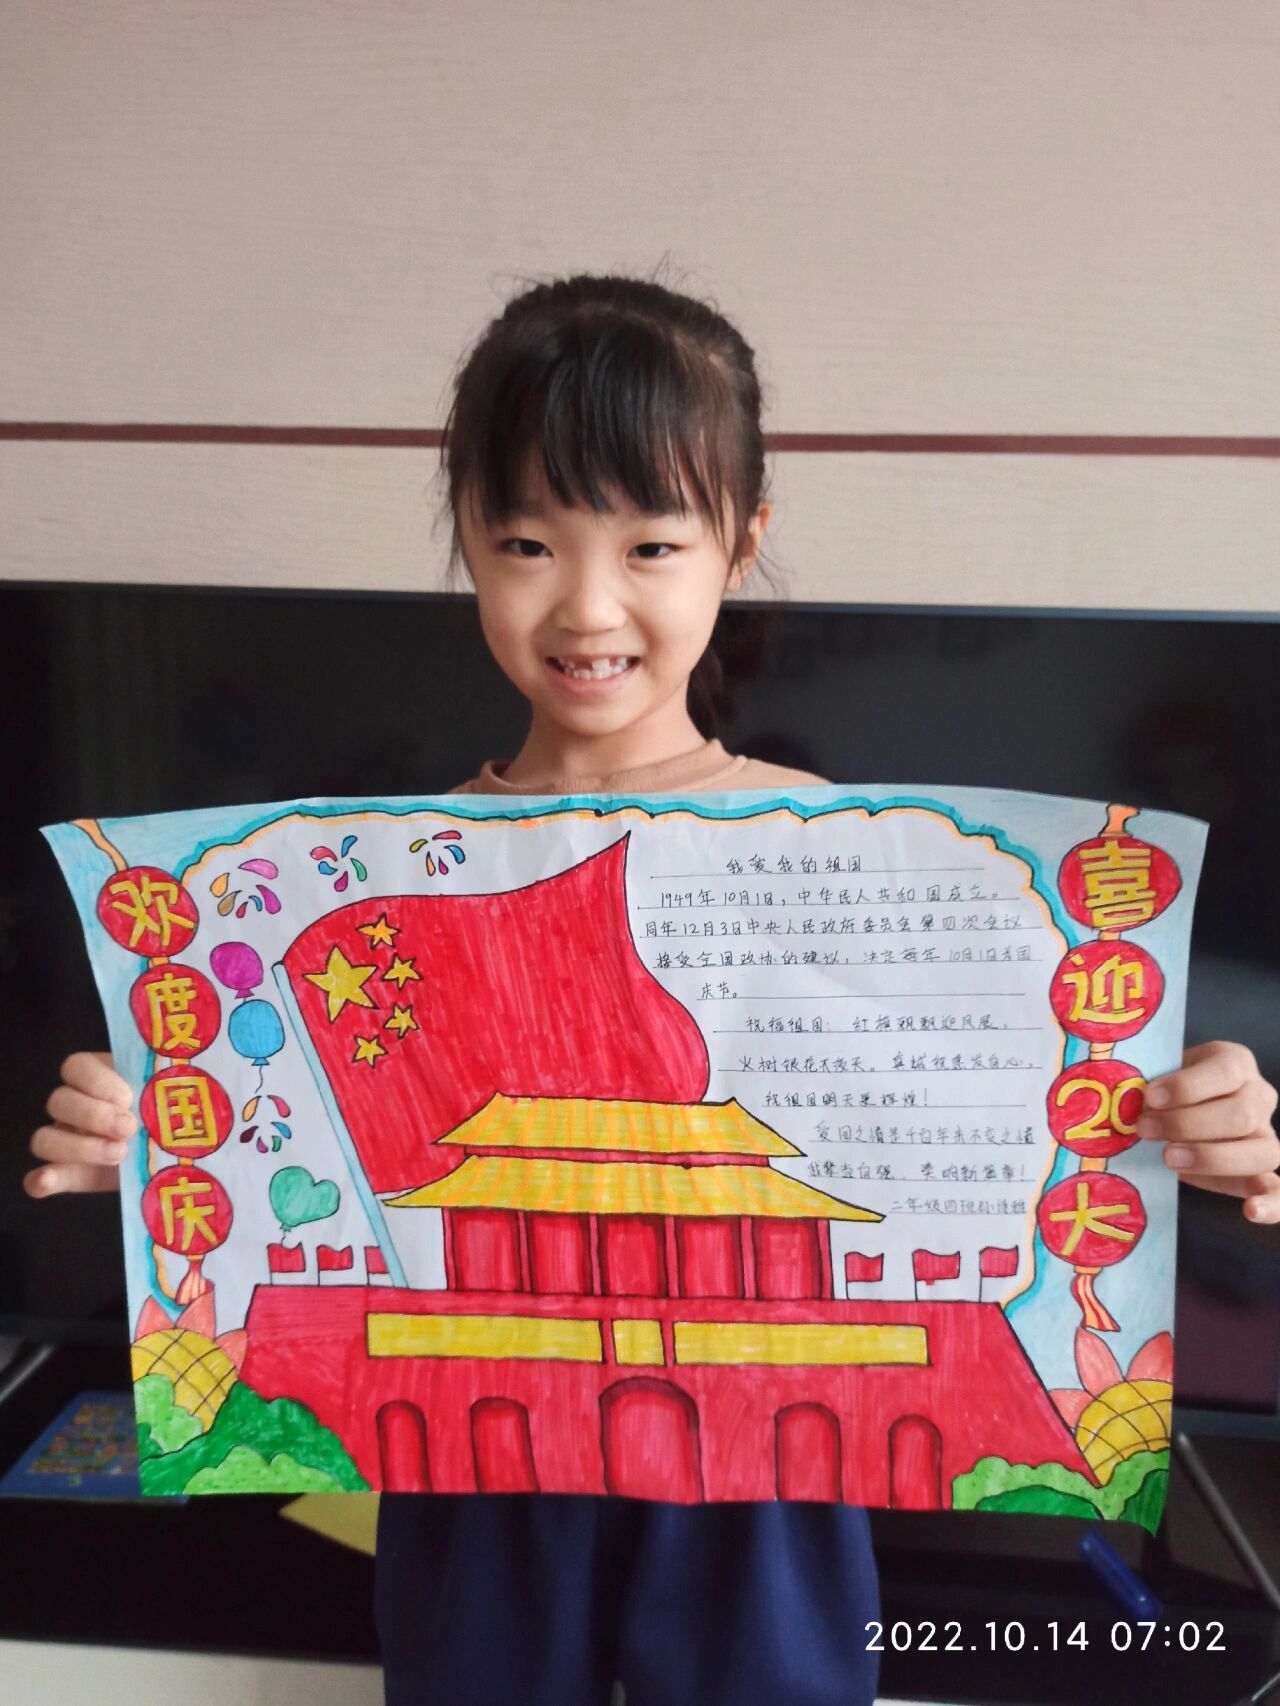 欢度国庆
喜迎20大
我爱我的祖国
1949年10月1日，中华民人共和国成立。
同年12月3日中央人民政府委员会第四次会议
接受全国政协的建议，决定每年10月1日为国
庆节。
祝福祖国：红旗飘飘迎风展，
火树银花不夜天。真诚祝愿发自心，
祝祖国明天更辉煌！
爱国之情是千百年来不变之情
我辈当自强，奏响新篇章！
二年级四班孙诗雅
2022.10.14 07:02